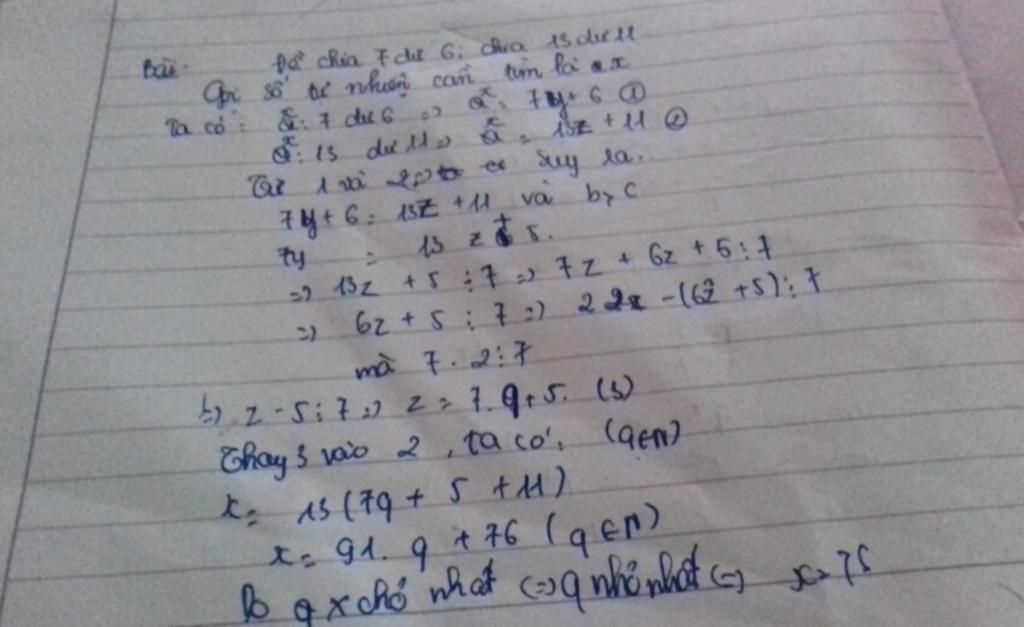 Bài: Để chia 7 dư 6; chia 13 dư 11
Gọi số tự nhiên cần tìm là x
Ta có: x : 7 dư 6 => x = 7y + 6 ①
x : 13 dư 11 => x = 13z + 11 ②
Từ 1 và 2 suy ra.
7y + 6 = 13z + 11 và b, c
7y = 13z + 5.
=> 13z + 5 ⋮ 7 => 7z + 6z + 5 ⋮ 7
=> 6z + 5 ⋮ 7 => - (6z + 5) ⋮ 7
mà 7 . 2 ⋮ 7
=> z - 5 ⋮ 7 => z = 7.q + 5. (3)
Thay 3 vào 2, ta có: (q∈N)
x = 13(7q + 5 + 11)
x = 91.q + 76 (q∈N)
Do q x nhỏ nhất <=> q nhỏ nhất <=>